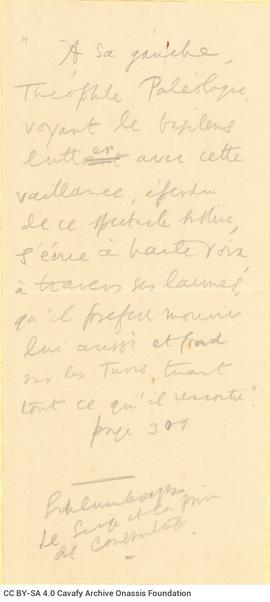 " À sa gauche,
Théophile Paléologue,
voyant le basileus
lutter avec cette
vaillance, éperdu
de ce spectacle sublime,
s'écrie à haute voix
à travers ses larmes,
qu'il préfère mourir
lui aussi et fond
sur les Turcs tuant
tout ce qu'il rencontre."
page 309
Schlumberger
Le Siège et la prise
de Constantinople
CC BY-SA 4.0 Cavafy Archive Onassis Foundation